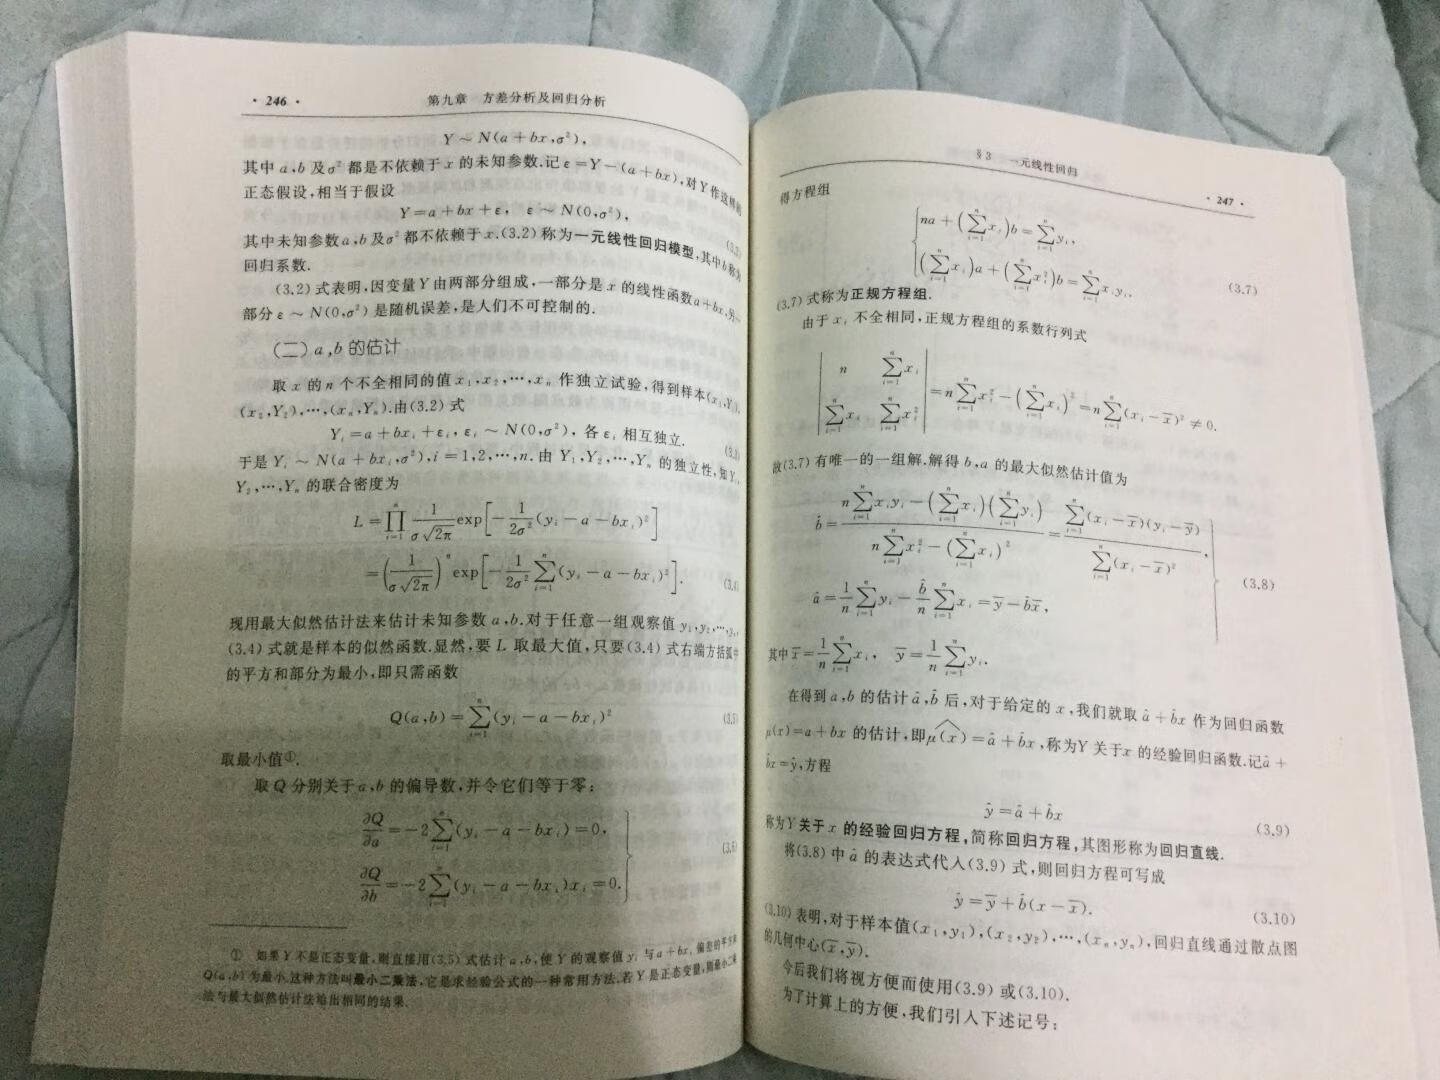 · 246 ·
第九章 方差分析及回归分析
Y ~ N(a + bx, σ²),
其中 a,b 及 σ² 都是不依赖于 x 的未知参数.记 ε = Y − (a + bx),对 Y 作这样的
正态假设,相当于假设
Y = a + bx + ε, ε ~ N(0, σ²),
其中未知参数 a,b 及 σ² 都不依赖于 x.(3.2) 称为一元线性回归模型,其中 b 称为
回归系数.
(3.2) 式表明,因变量 Y 由两部分组成,一部分是 x 的线性函数 a + bx,另一
部分 ε ~ N(0, σ²) 是随机误差,是人们不可控制的.
(二) a,b 的估计
取 x 的 n 个不全相同的值 x₁,x₂,…,xₙ 作独立试验,得到样本(x₁,Y₁),
(x₂,Y₂),…,(xₙ,Yₙ).由(3.2) 式
Yᵢ = a + bxᵢ + εᵢ, εᵢ ~ N(0, σ²), 各 εᵢ 相互独立.
于是 Yᵢ ~ N(a + bxᵢ, σ²), i = 1,2,…,n. 由 Y₁,Y₂,…,Yₙ 的独立性,知 Y₁,
Y₂,…,Yₙ 的联合密度为
L = ∏ᵢ₌₁ⁿ 1/(σ√2π) exp[−1/(2σ²) (yᵢ − a − bxᵢ)²]
= (1/(σ√2π))ⁿ exp[−1/(2σ²) ∑ᵢ₌₁ⁿ (yᵢ − a − bxᵢ)²]. (3.4)
现用最大似然估计法来估计未知参数 a,b.对于任意一组观察值 y₁,y₂,…,yₙ,
(3.4) 式就是样本的似然函数.显然,要 L 取最大值,只要(3.4) 式右端方括弧中
的平方和部分为最小,即只需函数
Q(a,b) = ∑ᵢ₌₁ⁿ (yᵢ − a − bxᵢ)² (3.5)
取最小值①.
取 Q 分别关于 a,b 的偏导数,并令它们等于零:
∂Q/∂a = −2∑ᵢ₌₁ⁿ (yᵢ − a − bxᵢ) = 0,
∂Q/∂b = −2∑ᵢ₌₁ⁿ (yᵢ − a − bxᵢ)xᵢ = 0. (3.6)
① 如果 Y 不是正态变量,则直接用(3.5) 式估计 a,b,使 Y 的观察值 yᵢ 与 a + bxᵢ 偏差的平方和
Q(a,b) 为最小.这种方法叫最小二乘法,它是求经验公式的一种常用方法.若 Y 是正态变量,则最小二乘
法与最大似然估计法给出相同的结果.
§3 一元线性回归
· 247 ·
得方程组
na + (∑ᵢ₌₁ⁿ xᵢ)b = ∑ᵢ₌₁ⁿ yᵢ,
(∑ᵢ₌₁ⁿ xᵢ)a + (∑ᵢ₌₁ⁿ xᵢ²)b = ∑ᵢ₌₁ⁿ xᵢyᵢ, (3.7)
(3.7) 式称为正规方程组.
由于 xᵢ 不全相同,正规方程组的系数行列式
| n ∑ᵢ₌₁ⁿ xᵢ |
| ∑ᵢ₌₁ⁿ xᵢ ∑ᵢ₌₁ⁿ xᵢ² | = n∑ᵢ₌₁ⁿ xᵢ² − (∑ᵢ₌₁ⁿ xᵢ)² = n∑ᵢ₌₁ⁿ (xᵢ − x̄)² ≠ 0.
故(3.7) 有唯一的一组解.解得 b,a 的最大似然估计值为
b̂ = (n∑ᵢ₌₁ⁿ xᵢyᵢ − (∑ᵢ₌₁ⁿ xᵢ)(∑ᵢ₌₁ⁿ yᵢ)) / (n∑ᵢ₌₁ⁿ xᵢ² − (∑ᵢ₌₁ⁿ xᵢ)²) = ∑ᵢ₌₁ⁿ (xᵢ − x̄)(yᵢ − ȳ) / ∑ᵢ₌₁ⁿ (xᵢ − x̄)²,
â = 1/n ∑ᵢ₌₁ⁿ yᵢ − b̂/n ∑ᵢ₌₁ⁿ xᵢ = ȳ − b̂x̄, (3.8)
其中 x̄ = 1/n ∑ᵢ₌₁ⁿ xᵢ, ȳ = 1/n ∑ᵢ₌₁ⁿ yᵢ.
在得到 a,b 的估计 â,b̂ 后,对于给定的 x,我们就取 â + b̂x 作为回归函数
μ(x) = a + bx 的估计,即 μ̂(x) = â + b̂x,称为Y 关于x 的经验回归函数.记 â +
b̂x = ŷ,方程
ŷ = â + b̂x (3.9)
称为 Y 关于 x 的经验回归方程,简称回归方程,其图形称为回归直线.
将(3.8) 中 â 的表达式代入(3.9) 式,则回归方程可写成
ŷ = ȳ + b̂(x − x̄). (3.10)
(3.10) 表明,对于样本值(x₁,y₁),(x₂,y₂),…,(xₙ,yₙ),回归直线通过散点图
的几何中心(x̄,ȳ).
今后我们将视方便而使用(3.9) 或(3.10).
为了计算上的方便,我们引入下述记号: